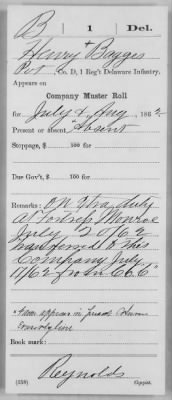 B | 1 | Del.
Henry + Bagges
Pvt, Co. D, 1 Reg't Delaware Infantry.
Appears on
Company Muster Roll
for July & Aug, 1862
Present or absent Absent
Stoppage, $ 100 for
Due Gov't, $ 100 for
Remarks: On xtra duty
at Fortress Monroe
July 20/62
transferred to this
Company July
17/62 from Co G"
+ name appears in
Book mark:
Reynolds
(358) Copyist.